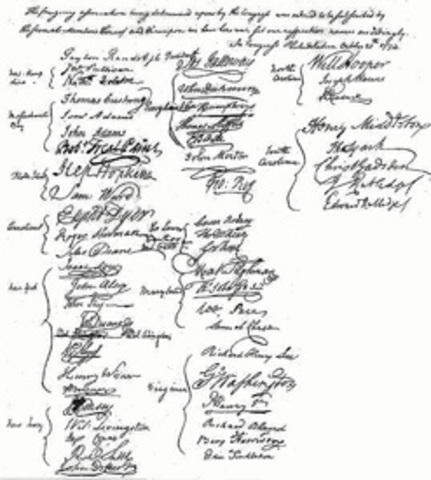 The foregoing association being determined upon by the Congress was ordered to be subscribed by
the several members thereof and thereupon we have hereunto set our respective names accordingly.
In Congress Philadelphia October 20th 1774.
Peyton Randolph President
New Hampshire
Jno Sullivan
Nath Folsom
Massachusetts Bay
Thomas Cushing
Sam Adams
John Adams
Robt Treat Paine
Rhode Island
Step Hopkins
Sam Ward
Connecticut
Elipht Dyer
Roger Sherman
Silas Deane
New York
Isaac Low
John Alsop
John Jay
Jas Duane
Wm Floyd
Henry Wisner
New Jersey
Wil: Livingston
Step Crane
Rd Smith
John De Hart
Jos Galloway
Pennsylvania
John Dickinson
Cha Humphreys
Thomas Mifflin
John Morton
Geo: Ross
The Lower
Caesar Rodney
Tho M:Kean
Geo Read
Maryland
Mat Tilghman
Wm Paca
Samuel Chase
Virginia
Richard Henry Lee
Go Washington
P Henry Jr
Richard Bland
Benj Harrison
Edm Pendleton
North Carolina
Will Hooper
Joseph Hewes
R Caswell
South Carolina
Henry Middleton
Tho Lynch
Christ Gadsden
J Rutledge
Edward Rutledge